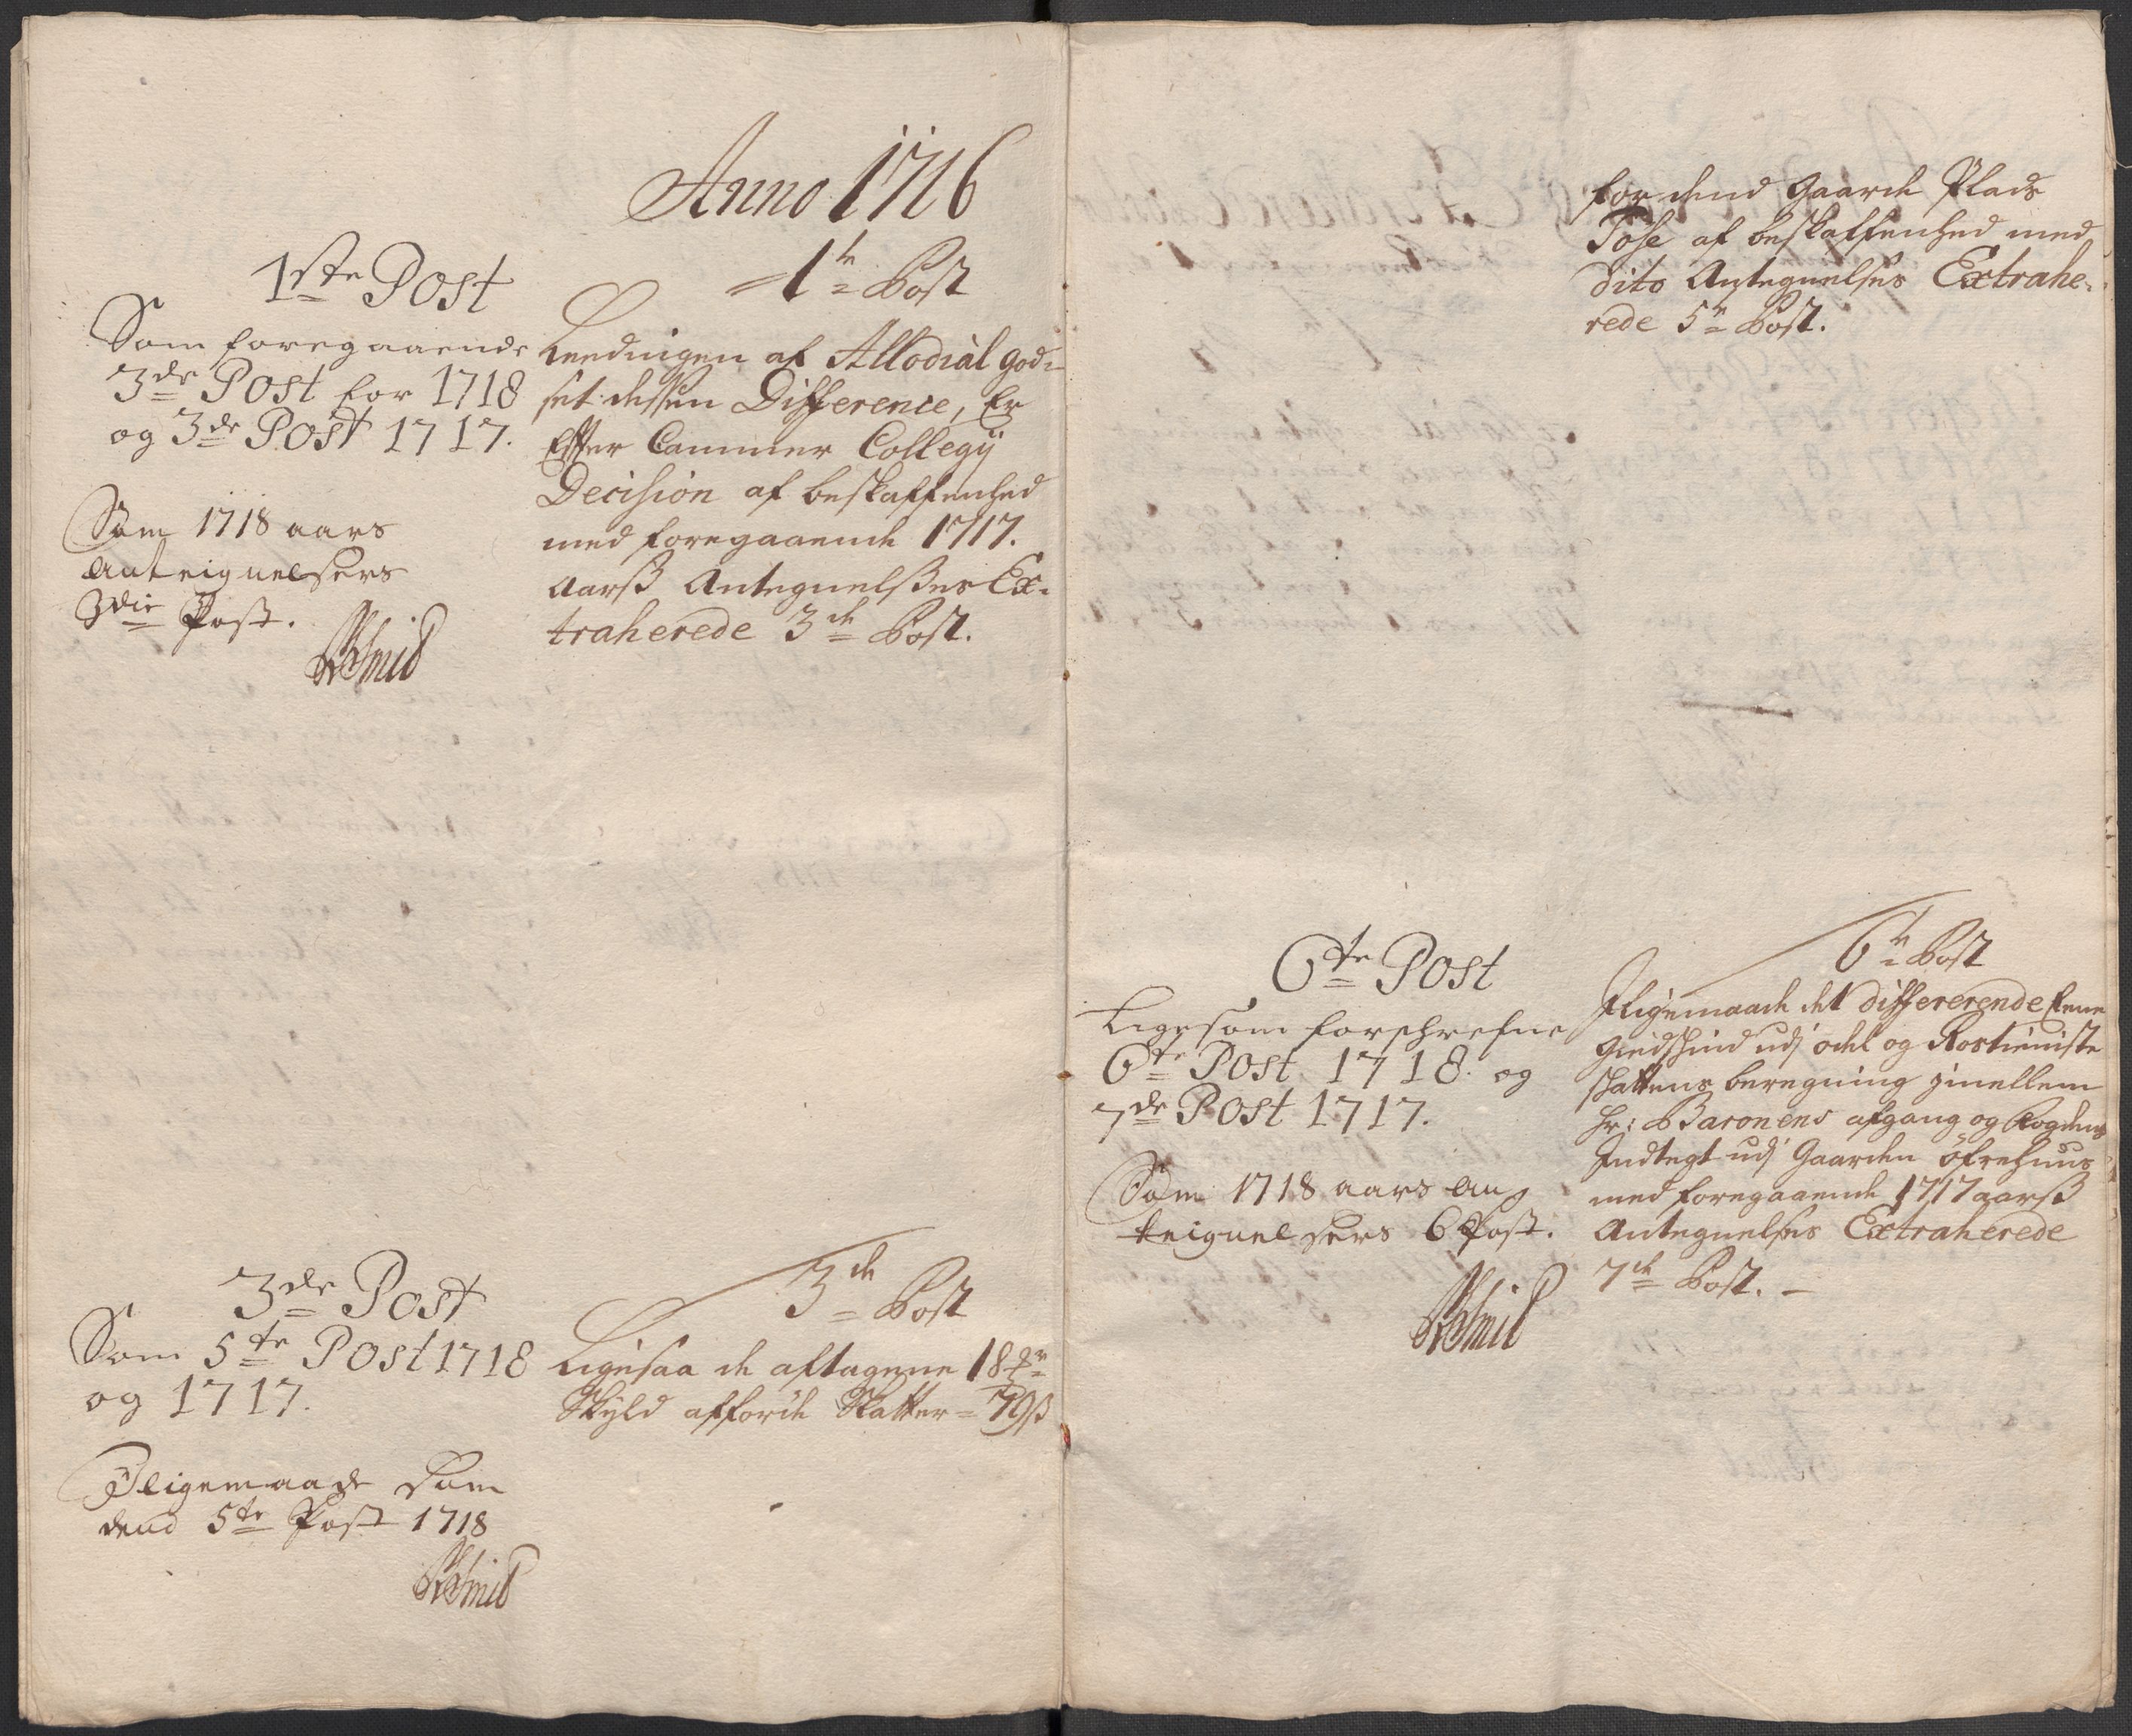 Anno 1716
1ste Post
Som foregaaende
3de Post for 1718
og 3de Post 1717.
Som 1718 aars
Anteignelsers
3die Post.
1te Post
Leedingen af Allodial god-
set dessen Difference, Er
Efter Cammer Collegij
Decision af beskaffenhed
med foregaaende 1717.
Aarß Antegnelßes Ex-
traherede 3de Post.
3de Post
Som 5te Post 1718
og 1717.
Iligemaade som
dend 5te Post 1718
3de Post
Ligesaa de aftagene 18
Skyld afförde Skatter = 79 ß
for dend Gaarde Plads
Tose af beskaffenhed med
dito Antegnelses Extrahe-
rede 5te Post.
6te Post
Ligesom forschrefne
6te Post 1718. og
7de Post 1717.
Som 1718 aars An
teignelsers 6 Post.
6te Post
Iligemaade det differerende
udj odel og
skattens beregning jmellem
Hr: Baronens afgang og Fogdens
Indtegt udj Gaarden öfrehuus
med foregaaende 1717 aarß
Antegnelses Extraherede
7de Post. -